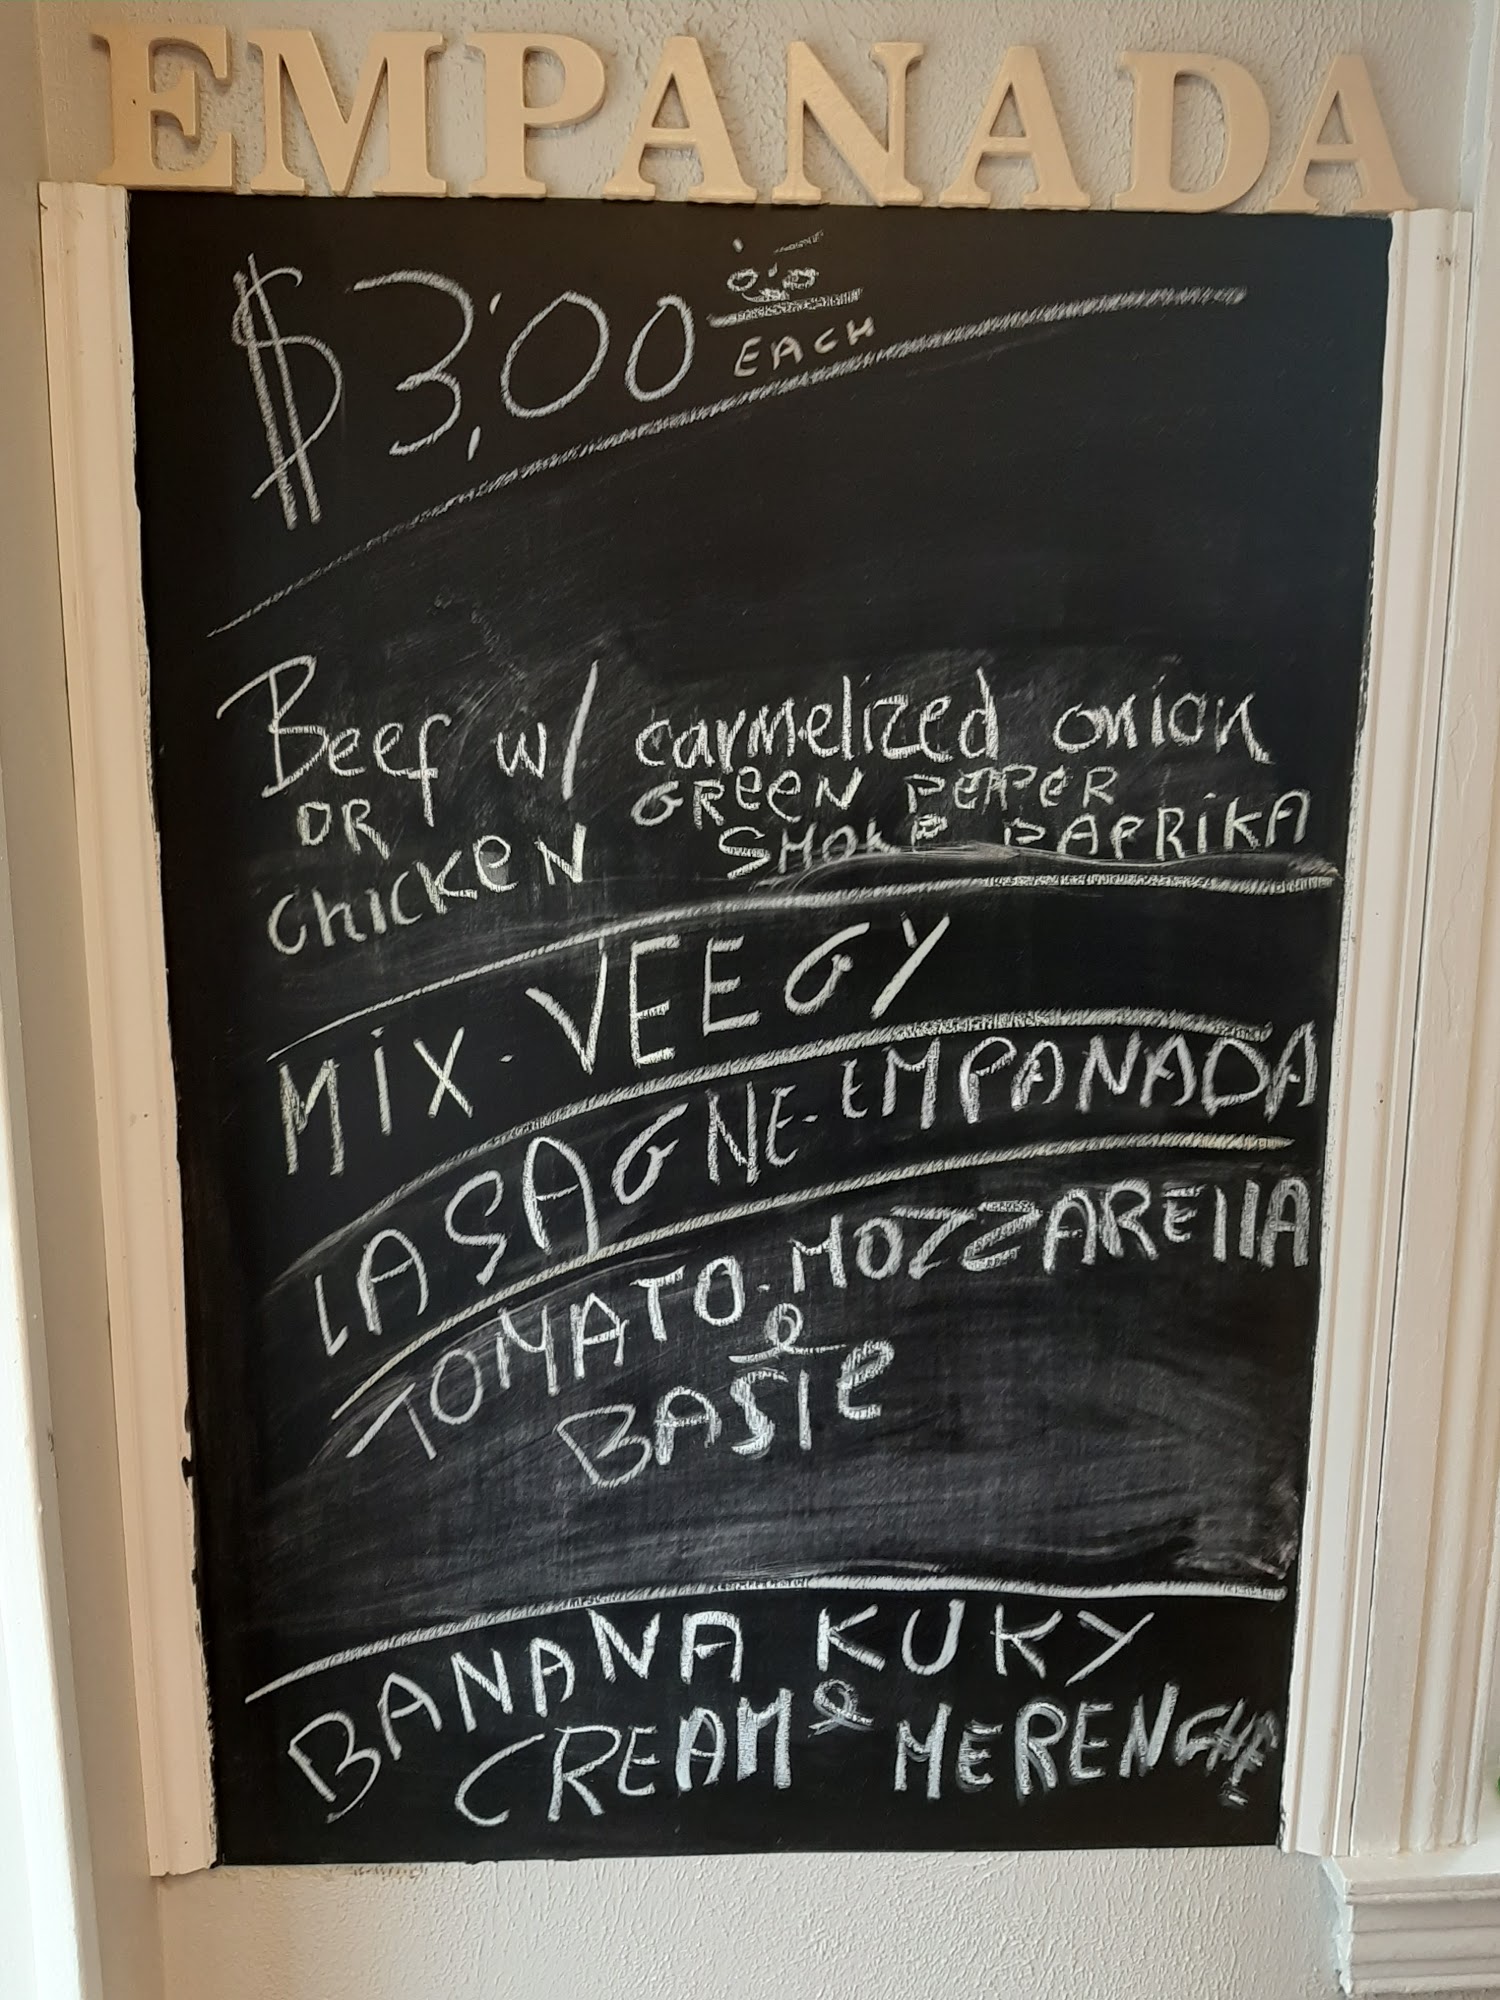 EMPANADA
$3,00
EACH
Beef w/ carmelized onion
OR GREEN PEPPER
CHICKEN SMOKE PAPRIKA
MIX-VEEGY
LASAGNE-EMPANADA
TOMATO-MOZZARELLA
&
BASIL
BANANA KUKY
CREAM & MERENGHE